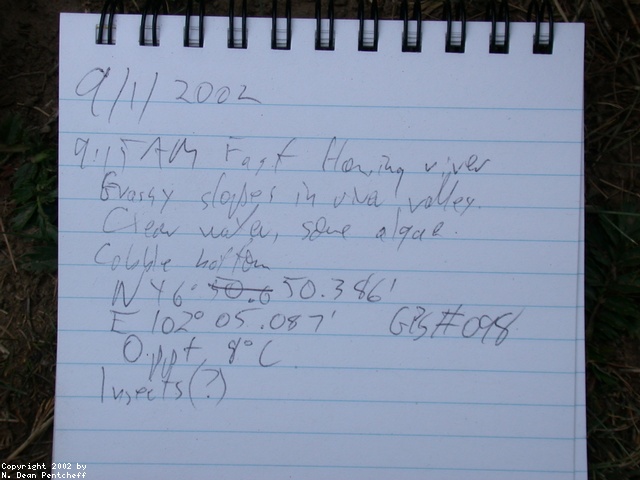 9/1/2002
9:15 AM Fast flowing river
Grassy slopes in river valley.
Clear water, some algae.
Cobble bottom
N 46° 50.6 50.386'
E 102° 05.087' GPS#098
0 ppt, 8°C
Insects(?)
Copyright 2002 by
N. Dean Pentcheff